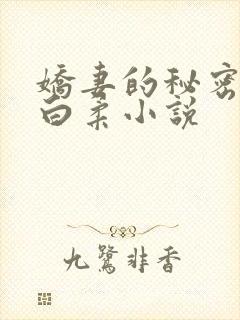 嬌妻的秘密
白柔小說
九鷺非香